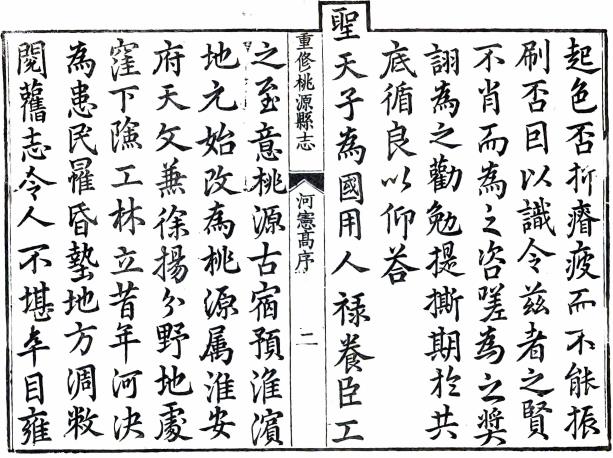 起色否抑瘠疲而不能振
刷否因以識令茲者之賢
不肖而為之咨嗟為之獎
詡為之勸勉提撕期於共
底循良以仰荅
聖天子為國用人祿養臣工
重修桃源縣志
河憲高序
二
之至意桃源古宿預淮濱
地元始改為桃源属淮安
府天文兼徐揚分野地處
窪下險工林立昔年河決
為患民罹昏墊地方凋敝
閱舊志令人不堪卒目雍